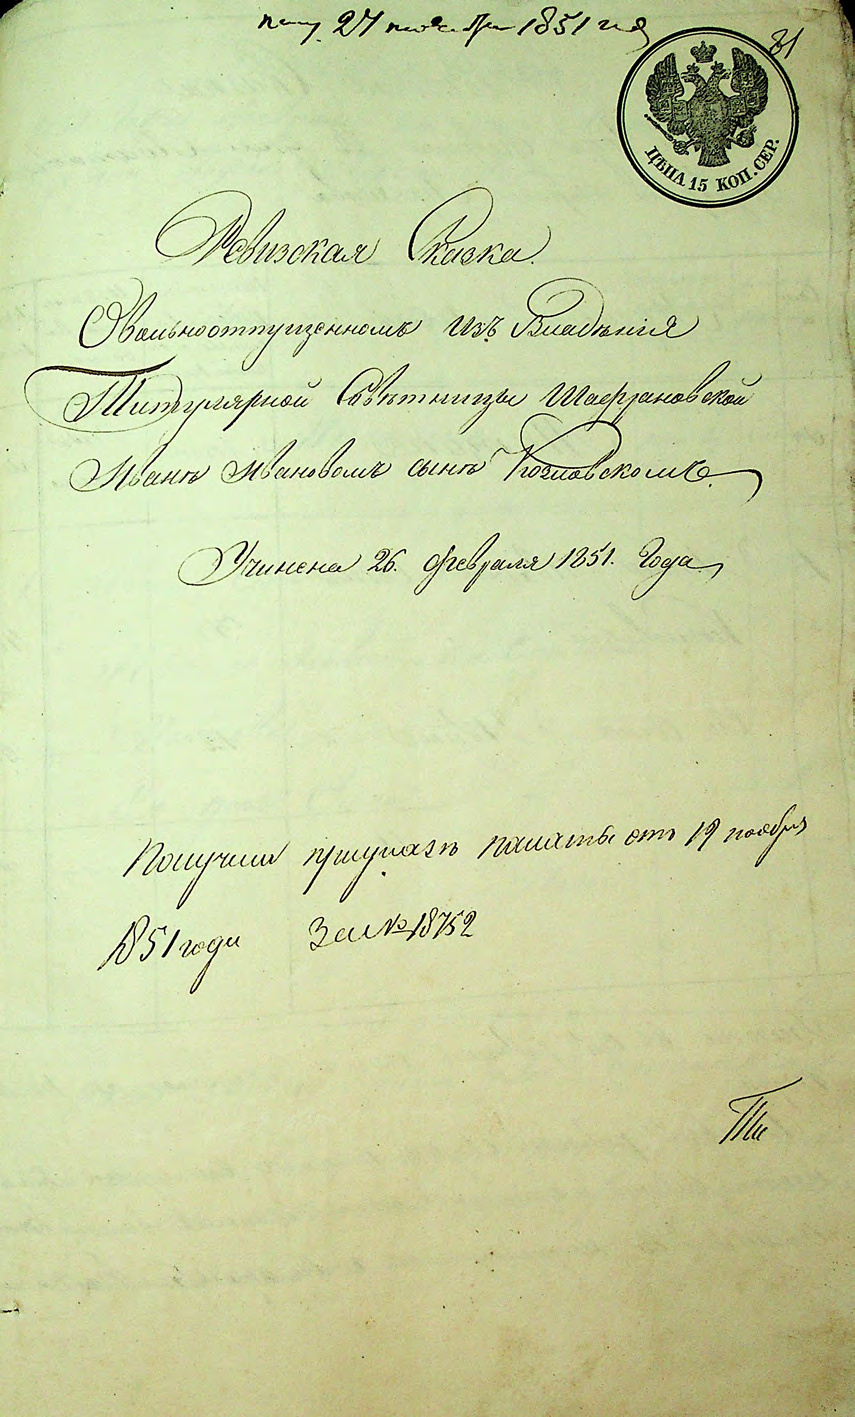 пол. 27 ноября 1851 года
81
ЦѢНА 15 КОП. СЕР.
Ревизская Сказка.
О вольноотпущенномъ изъ Владѣнія
Титулярной Совѣтницы Шафрановской
Иванѣ Ивановомъ сынѣ Козловскомъ.
Учинена 26. февраля 1851. Года
Получили при указѣ палаты отъ 19 ноября
1851 года За №18752